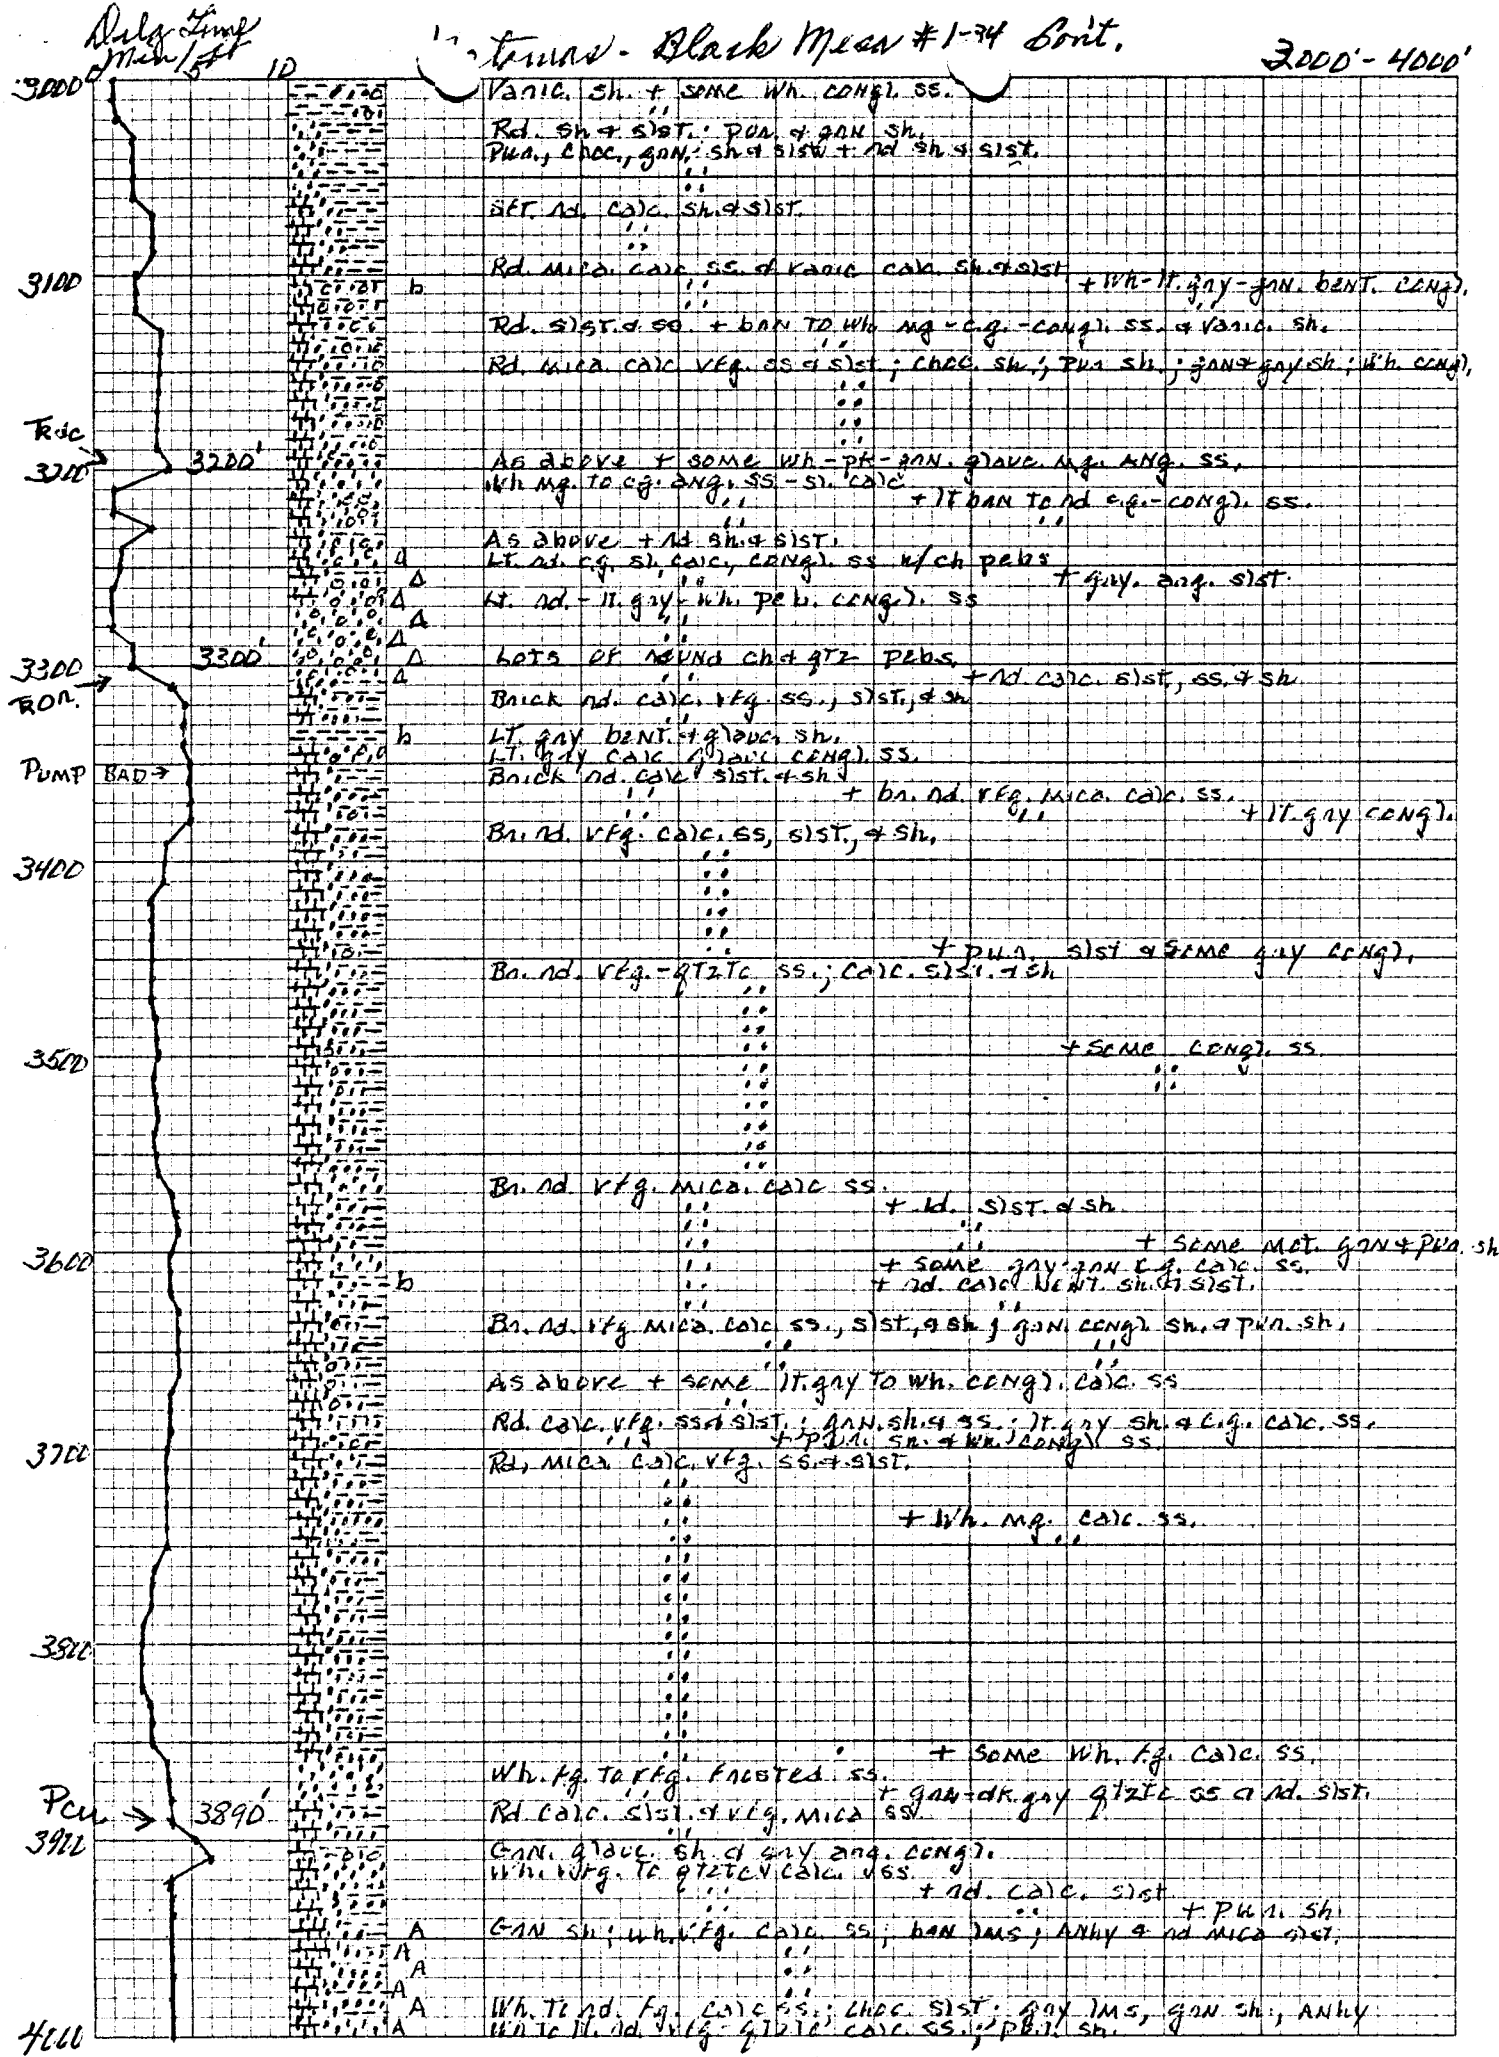 Drlg Time
Min/5ft
5 10
- Black Mesa #1-34 Con't.
3000' - 4000'
3000
Varic. sh. + some wh. congl. ss.
Rd. sh & slst.; pur. & grn sh.
Pur., choc., grn. sh & slst + rd sh & slst.
Sft. rd. calc. sh. & slst.
Rd. mica. calc. ss. & varic calc. sh. & slst
3100
b
+ wh-lt. gry-grn. bent. congl.
Rd. slst. & ss. + brn to wh mg-c.g.-congl. ss. & varic. sh.
Rd. mica. calc vfg. ss & slst; choc. sh.; pur sh.; grn & gry sh; wh. congl.
TRdc
3200' As above + some wh-pk-grn. glauc. mg. ang. ss.
3200
Wh mg. to cg. ang. ss - sl. calc
+ lt brn to rd c.g.-congl. ss.
As above + rd sh. & slst.
Δ Lt. rd. cg. sl. calc, congl. ss w/ch pebs
Δ + gry. ang. slst.
Δ Lt. rd. - lt. gry - wh. peb. congl. ss
Δ
Δ
3300' Δ Lots of round ch & qtz pebs.
3300
Δ + rd. calc. slst., ss. & sh
TROn.
Brick rd. calc. vfg. ss., slst., & sh
b Lt. gry bent. & glauc. sh.
Lt. gry calc glauc congl. ss.
PUMP BAD → Brick rd. calc slst. & sh
+ br. rd. vfg. mica. calc. ss.
+ lt. gry congl.
Br. rd. vfg. calc. ss, slst., & sh.
3400
+ pur. slst & some gry congl.
Br. rd. vfg.-qtztc ss.; calc. slst. & sh
3500
+ some congl. ss.
Br. rd. vfg. mica. calc ss.
+ rd. slst. & sh
+ some mot. grn & pur. sh
3600
+ some gry-grn c.g. calc. ss.
b + rd. calc bent. sh. & slst.
Br. rd. vfg mica. calc ss., slst, & sh; grn. congl sh. & pur. sh.
As above + some lt. gry to wh. congl. calc. ss
Rd. calc. vfg. ss & slst.; grn. sh. & ss.; lt. gry sh. & c.g. calc. ss.
+ pur. sh. & wh. congl ss.
3700
Rd. mica calc. vfg. ss. & slst.
+ Wh. mg. calc. ss.
3800
+ some wh. fg. calc. ss.
Wh. fg. to vfg. frosted ss.
+ grn-dk. gry qtztc ss & rd. slst.
Pcu → 3890' Rd calc. slst. & vfg. mica ss
3900
Grn. glauc. sh & gry ang. congl.
Wh. vfg. to qtztc calc. ss.
+ rd. calc. slst
+ pur. sh
A Grn sh; wh. vfg. calc. ss; brn lms; Anhy & rd mica slst.
A
A
A
A Wh. to rd. fg. calc ss.; choc slst; gry lms, grn sh., Anhy
4000
A Wh to lt. rd. vfg - qtztc calc. ss.; pur. sh.